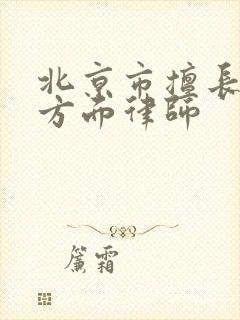 北京市擅長
方面律師
簾霜